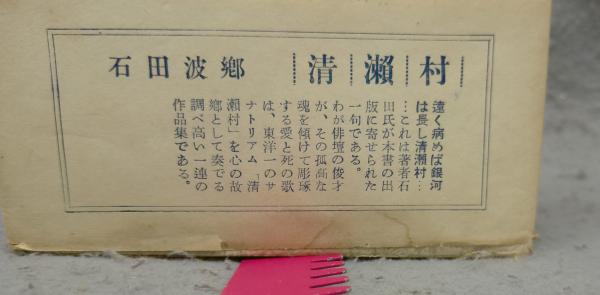 清瀬村
石田波郷
遠く病めば銀河
は長し清瀬村…
…これは著者石
田氏が本書の出
版に寄せられた
一句である。
わが俳壇の俊才
が、その孤高な
魂を傾けて彫琢
する愛と死の歌
は、東洋一のサ
ナトリアム「清
瀬村」を心の故
郷として奏でる
調べ高い一連の
作品集である。